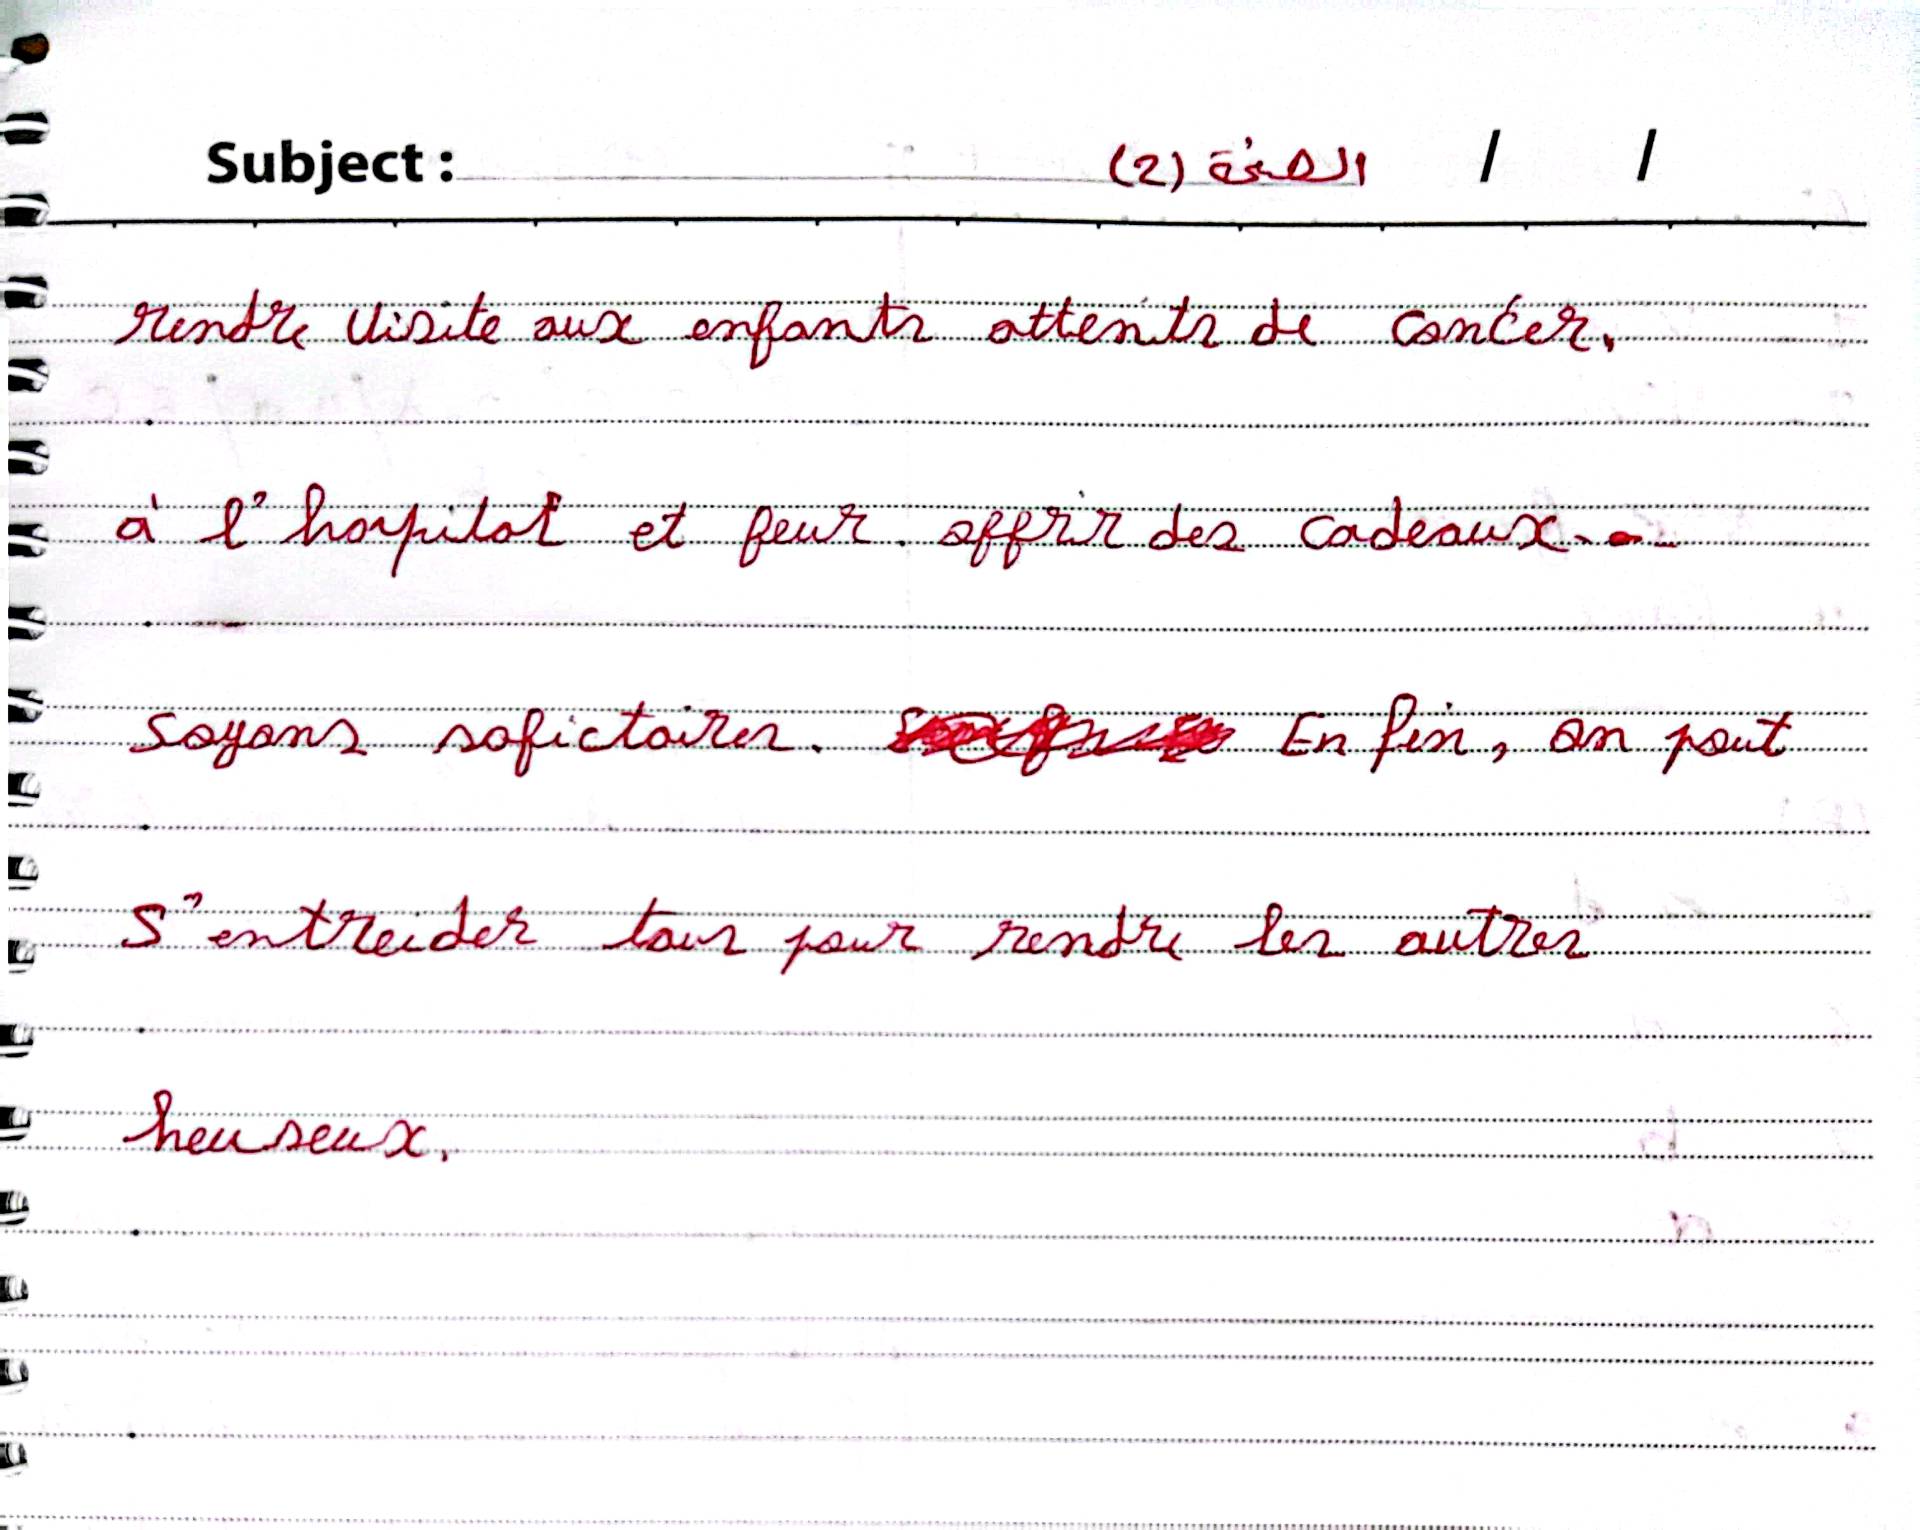 Subject : الصفحة (2) / /
rendre visite aux enfants attents de cancer.
à l'hospital et leur offrir des cadeaux...
soyons solictaires. En fin, on peut
s'entreider tous pour rendre les autres
heuseux.